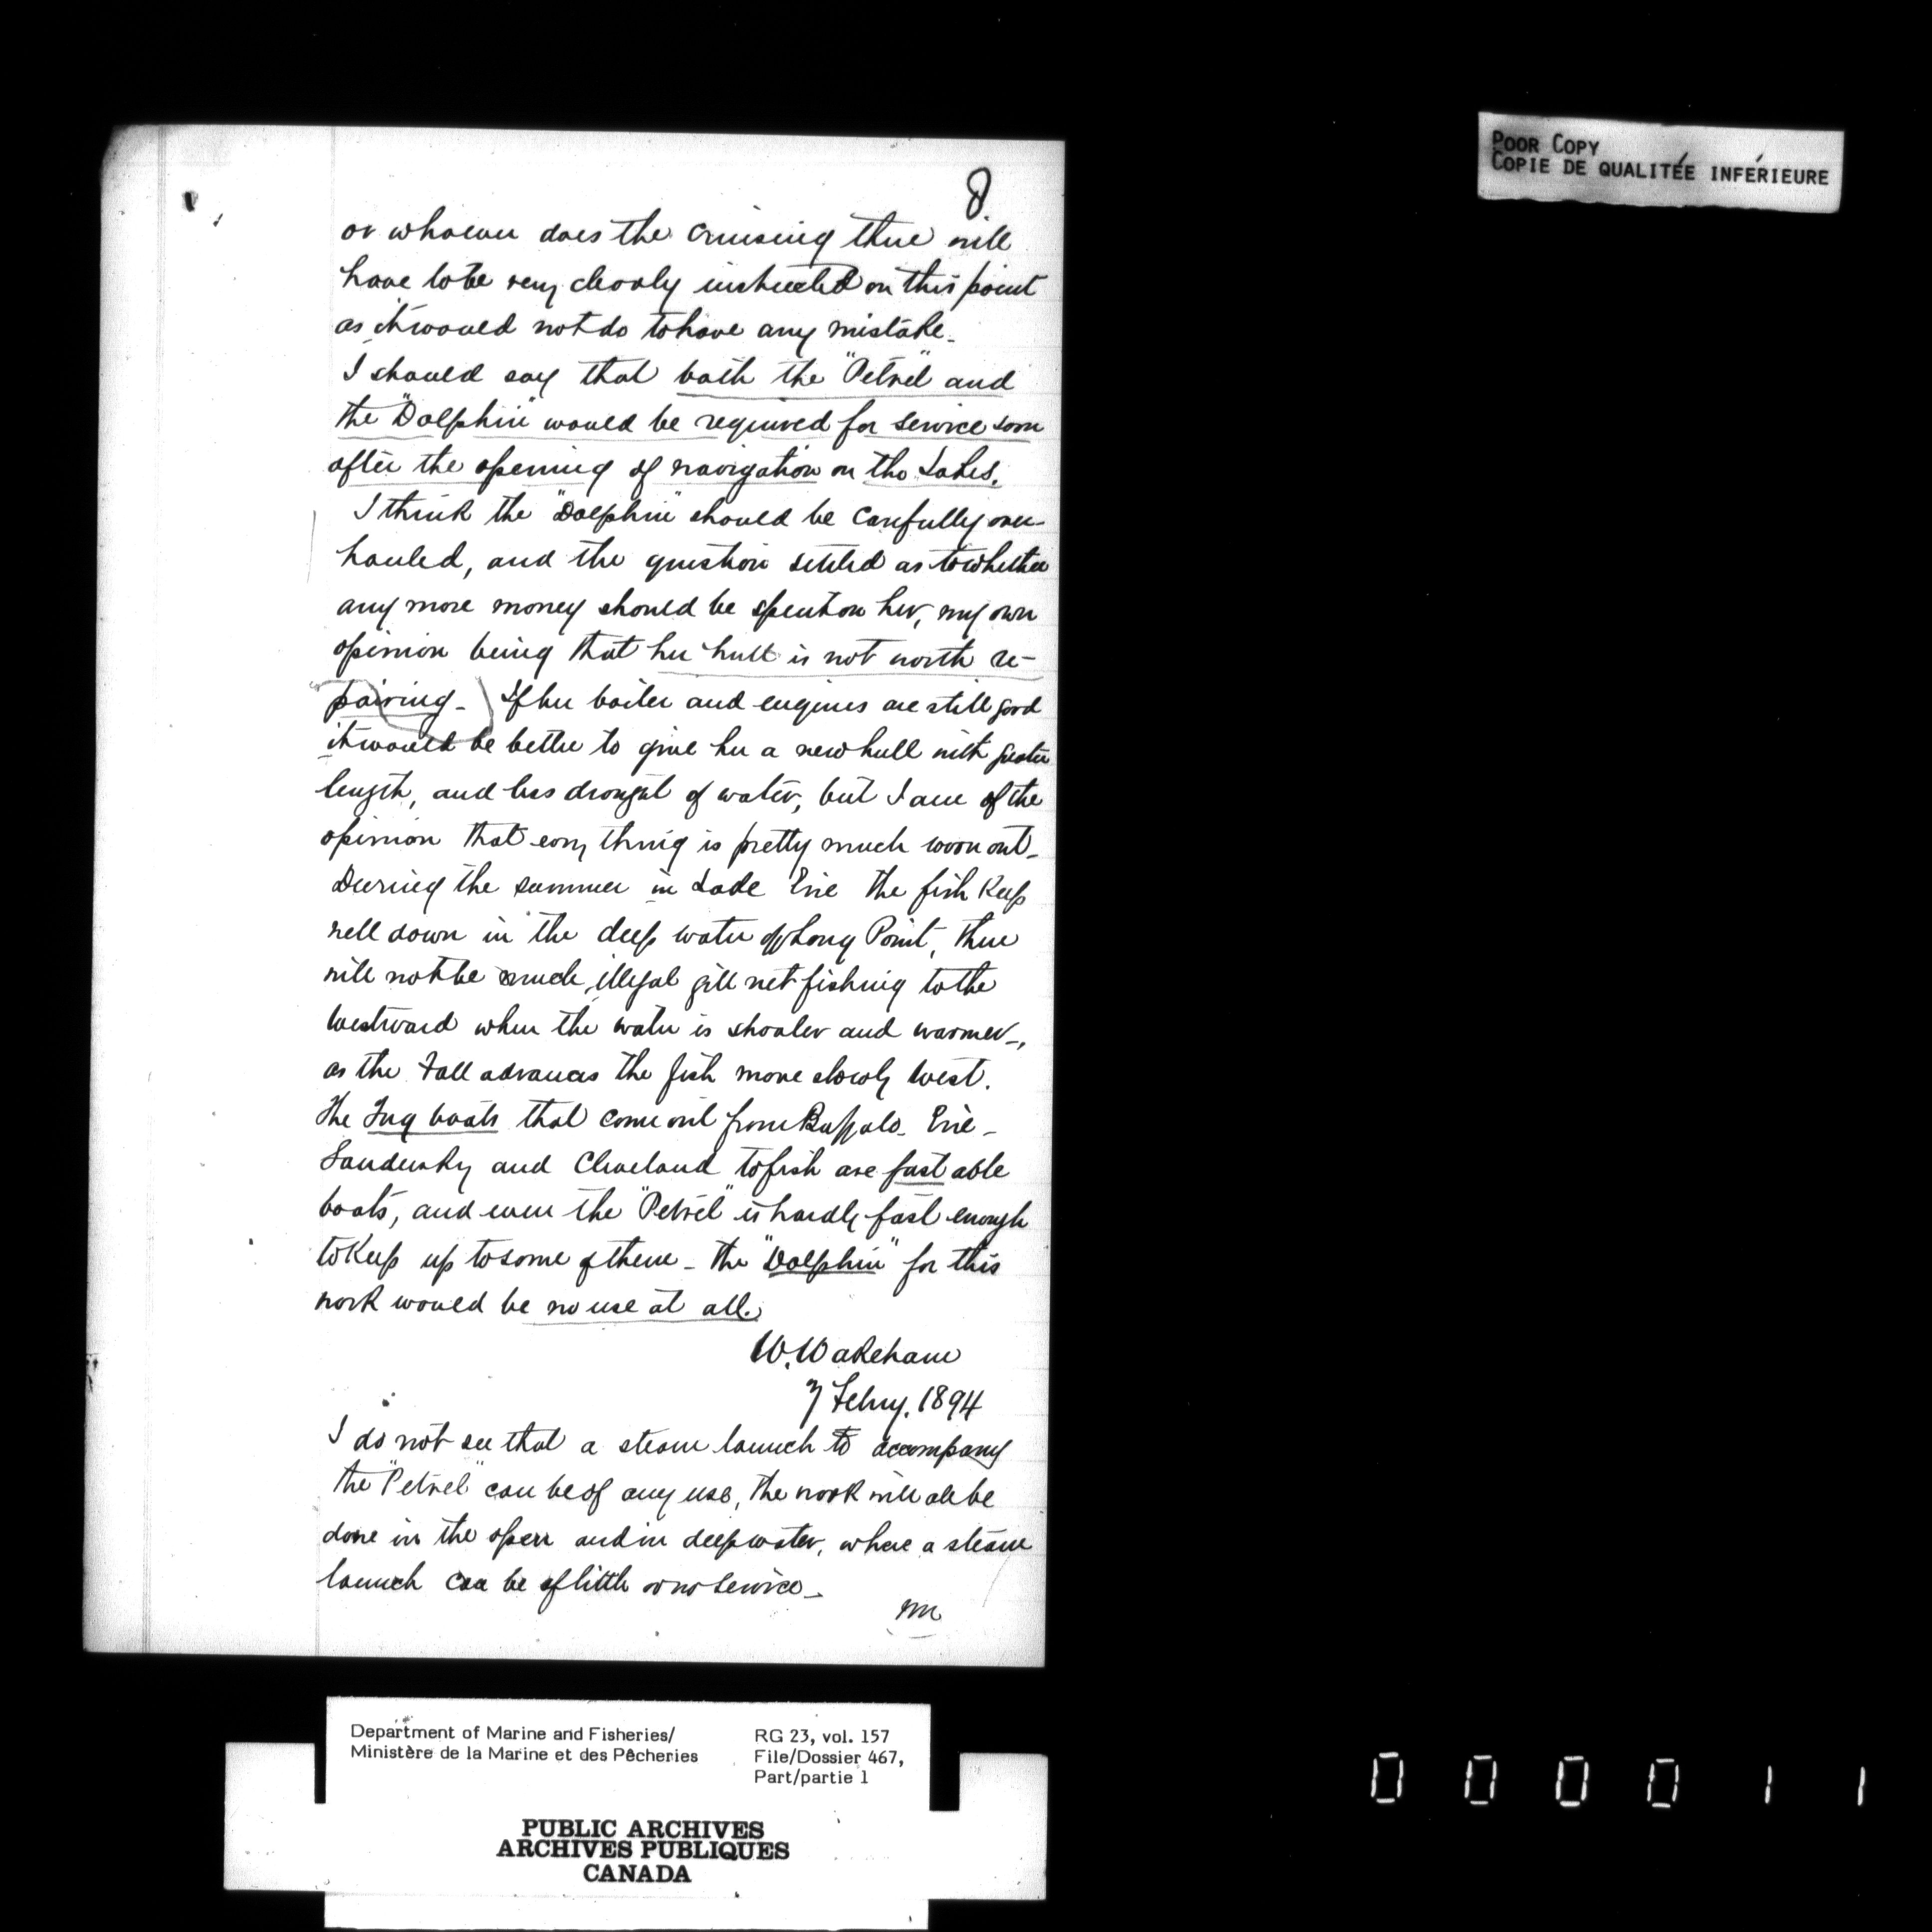 POOR COPY
COPIE DE QUALITÉE INFÉRIEURE
8.
or whoever does the cruising there will
have to be very clearly instructed on this point
as it would not do to have any mistake -
I should say that both the "Petrel" and
the "Dolphin" would be required for service soon
after the opening of navigation on the Lakes.
I think the "Dolphin" should be carefully over-
hauled, and the question settled as to whether
any more money should be spent on her, my own
opinion being that her hull is not worth re-
pairing - If her boiler and engines are still good
it would be better to give her a new hull with greater
length, and less draught of water, but I am of the
opinion that every thing is pretty much worn out -
During the summer in Lake Erie the fish keep
well down in the deep water off Long Point, there
will not be much illegal gill net fishing to the
westward when the water is shoaler and warmer -,
as the Fall advances the fish move slowly West.
The Tug boats that come out from Buffalo - Erie -
Sandusky and Cleveland to fish are fast able
boats, and even the "Petrel" is hardly fast enough
to keep up to some of them - the "Dolphin" for this
work would be no use at all.
W. Wakeham
7 Febry. 1894
I do not see that a steam launch to accompany
the "Petrel" can be of any use, the work will all be
done in the open and in deep water, where a steam
launch can be of little or no service -
Department of Marine and Fisheries/
Ministère de la Marine et des Pêcheries
RG 23, vol. 157
File/Dossier 467,
Part/partie 1
PUBLIC ARCHIVES
ARCHIVES PUBLIQUES
CANADA
000011